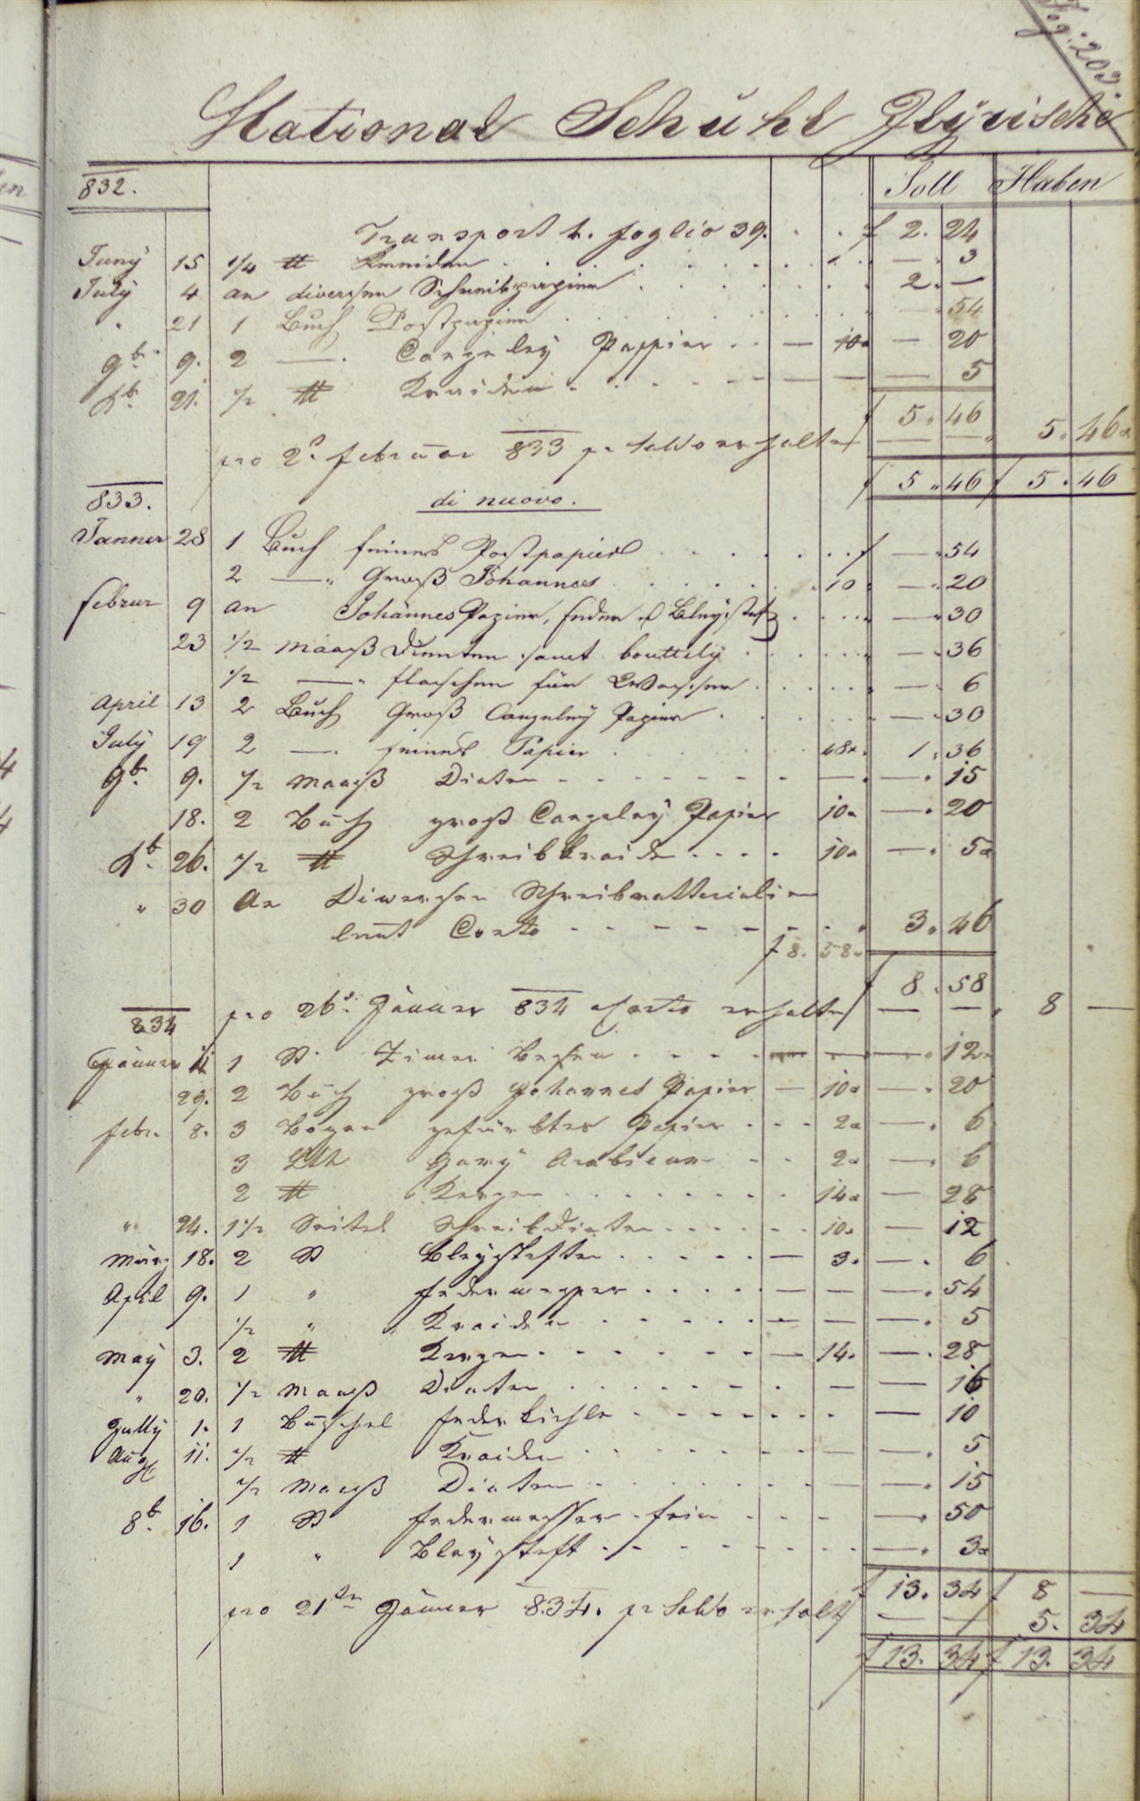 Fog: 203.
National Schuhl Jlÿrische
832. Soll Haben
Transport v. foglio 39. . . f 2. 24
Juny 15 1/4 ℔ Kreiden . . . — . 3
July 4 an diversen Schreibpapier . . . 2. —
" 21 1 Buch Postpapier . . . — 54
9b. 9. 2 — . Canzeley Pappier . . — 10x — 20
Xb. 21. 1/2 ℔ Kraiden . . . — — — 5
f 5. 46
pro 2e februar 833 pr Saldo erhalten — — 5. 46x
f 5. 46 f 5. 46
833. di nuovo.
Janner 28 1 Buch feines Postpapier . . . f — . 54
2 — " Groß Johannes . . . 10 — . 20
februr 9 an Johannes Papier, feder & Bleystift . . . — . 30
23 1/2 Maaß Dinten samt bouttely . . . — . 36
1/2 — " flaschen für Wasser . . . — . 6
April 13 2 Buch Groß Canzeley Papier . . . — . 30
July 19 2 — . feines Papier . . . 48x. 1. 36
9b. 9. 1/2 Maaß Dinten - - - — . — . 15
18. 2 Buch groß Canzeley Papier 10x — . 20
Xb. 26. 1/2 ℔ Schreibkraide . . . . 10x — . 5x
" 30 An Diversen Schreibmatterialien
laut Conto - - - - - - 3. 46
f 8. 58x
f 8. 58
pro 26e Jänner 834 Conto erhalten — — . 8 —
834
Jänner 11 1 St Zimer Besen . . . . — — — . 12x
29. 2 Buch groß Johannes Papier — 10x — . 20
febr. 8. 3 Bogen gefärbtes Papier . . . 2x — . 6
3 Lth Gumy Arabicum - - 2x — . 6
2 ℔ Kerzen . . . . . . . 14x — 28
" 24. 1 1/2 Seitel Schreibdinten . . . . . . 10x — 12
März 18. 2 St Bleystiften . . . . . — 3. — . 6
April 9. 1 " federmesser . . . . . — — — . 54
1/2 " Kraiden . . . . . . — — — . 5
May 3. 2 ℔ Kerzen . . . . . . — 14. — . 28
" 20. 1/2 Maaß Dinten . . . . . . . — — 16
Jully 1. 1 Büschel federkiehle . . . . . . . — 10
Aug 11. 1/2 ℔ Kraiden . . . . . . — — . 5
1/2 Maaß Dinten . . . . . . — — . 15
8b. 16. 1 St federmesser fein . . . — . 50
1 " Bleystift . . . . . . . — . 3x
f 13. 34 f 8 —
pro 21ten Jänner 834. pr Saldo erhalten — — 5. 34
f 13. 34 f 13. 34